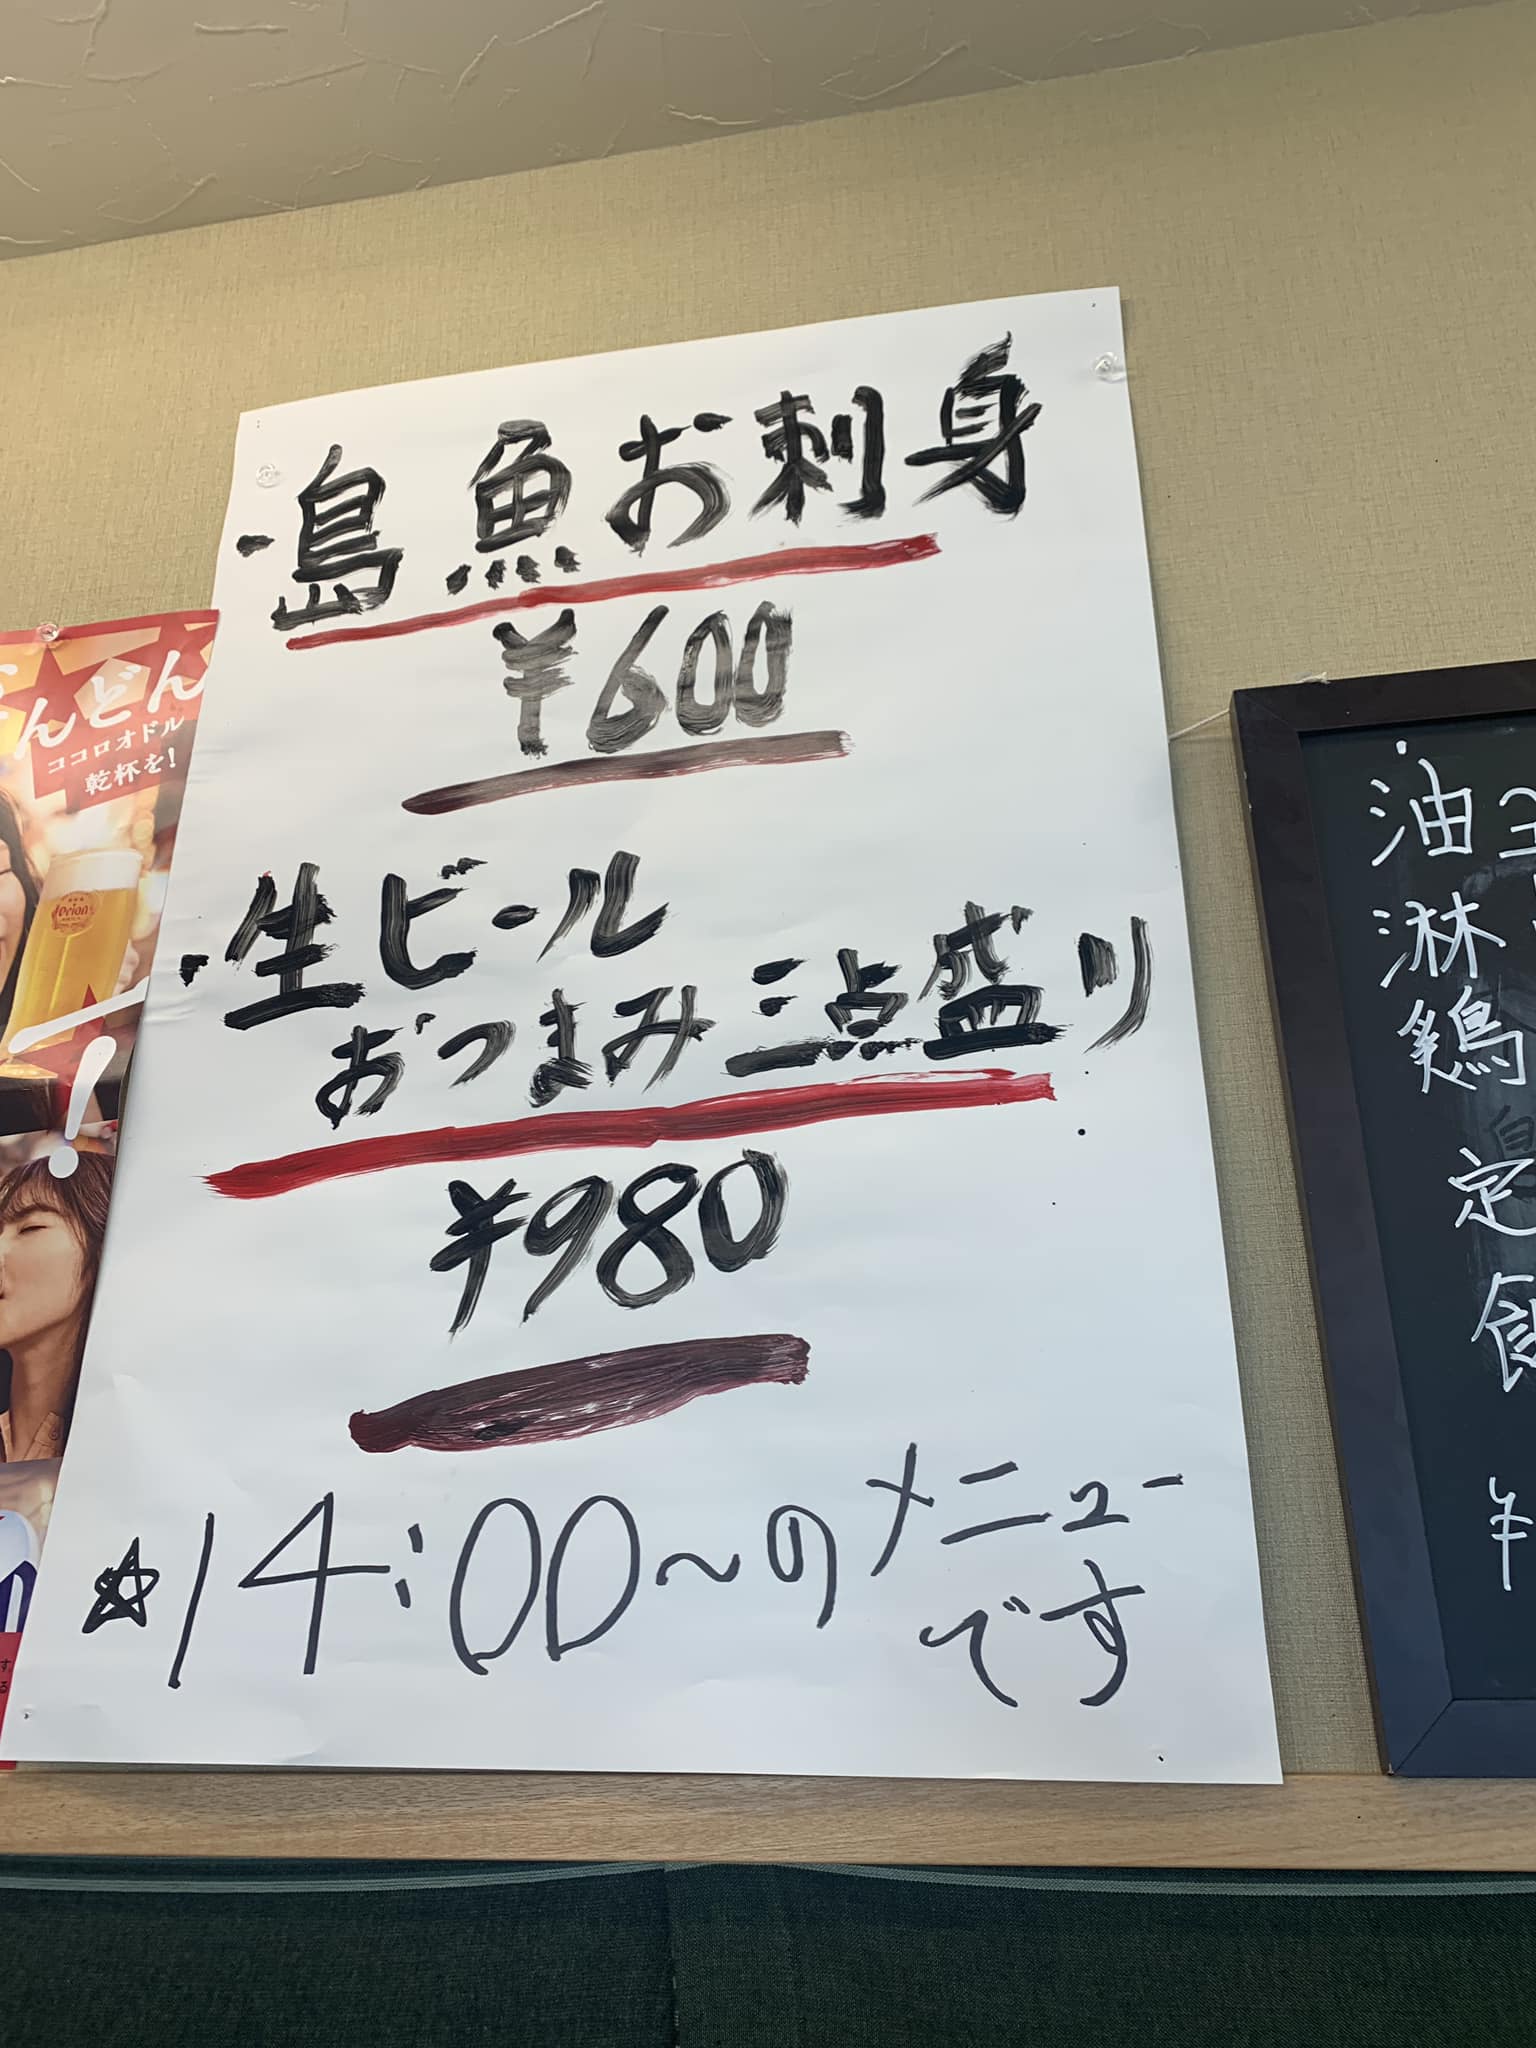 ・島魚お刺身
¥600
・生ビール
おつまみ三点盛り
¥980
☆14:00~のメニュー
です
んどん
ココロオドル
乾杯を!
Orion
!
す
る
・油淋鶏定食 ¥